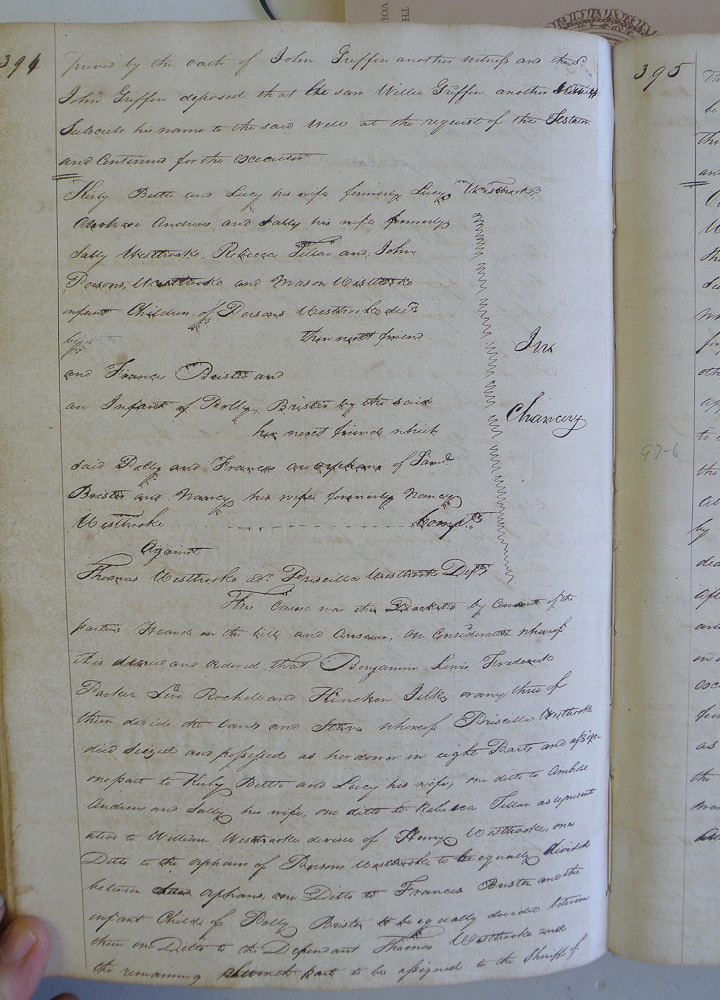 394
proved by the oath of John Griffin another witness and the sd
John Griffin deposed that he saw Willie Griffin another
Subscribe his name to the said Will at the request of the Testator
and Continued for the executor
Kirby Bittle and Lucy his wife formerly Lucy Westbrooke
Ambrose Andrews and Sally his wife formerly
Sally Westbrooke, Rebecca Tillar and John
Parsons, Westbrooke and Mason Westbrooke
infant Children of Parsons Westbrooke decd
by their next friend
In
and Francis Brister and
an Infant of Polly Brister by the said
Chancery
his next friend which
said Polly and Francis are orphans of Saml
Brister and Nancy his wife formerly Nancy
Westbrooke Compts
Against
Thomas Westbrooke Priscilla Westbrooke Defts
This Cause was this Docketed by Consent of the
parties Heard on the bill and Answer, on Consideration whereof
it is decreed and ordered that Benjamin Lewis Frederick
Parker Levi Rochelle and Hincken Jelks or any three of
them divide the Land and whereof Priscilla Westbrooke
died seized and possessed as her dower in eight Parts and assign
one part to Kirby Bittle and Lucy his wife, one ditto to Ambrose
Andrews and Sally his wife, one ditto to Rebecca Tillar as represent
ative to William Westbrooke devisee of Henry Westbrooke, one
Ditto to the orphans of Parsons Westbrooke to be equally divided
between said orphans, one Ditto to Francis Brister and the
infant Child of Polly Brister to be equally divided between
them one Ditto to the Defendant Thomas Westbrooke and
the remaining part to be assigned to the Sheriff of
395
97-6